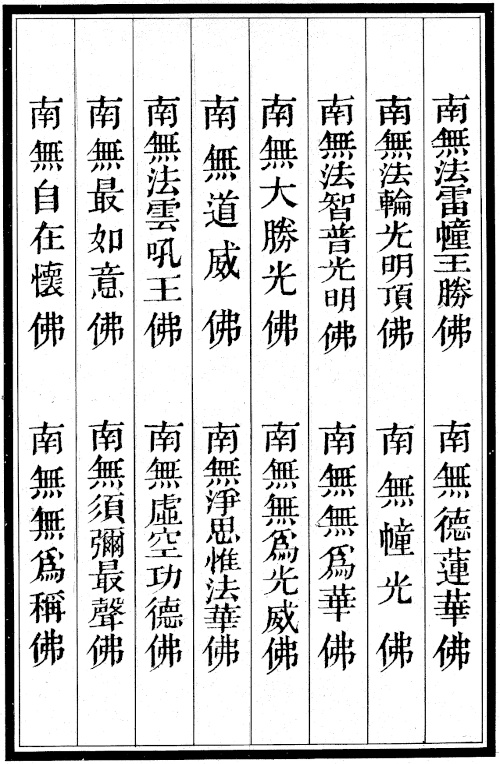 南無法雷幢王勝佛
南無德蓮華佛
南無法輪光明頂佛
南無幢光佛
南無法智普光明佛
南無無為華佛
南無大勝光佛
南無無為光威佛
南無道威佛
南無淨思惟法華佛
南無法雲吼王佛
南無虛空功德佛
南無最如意佛
南無須彌最聲佛
南無自在懷佛
南無無為稱佛